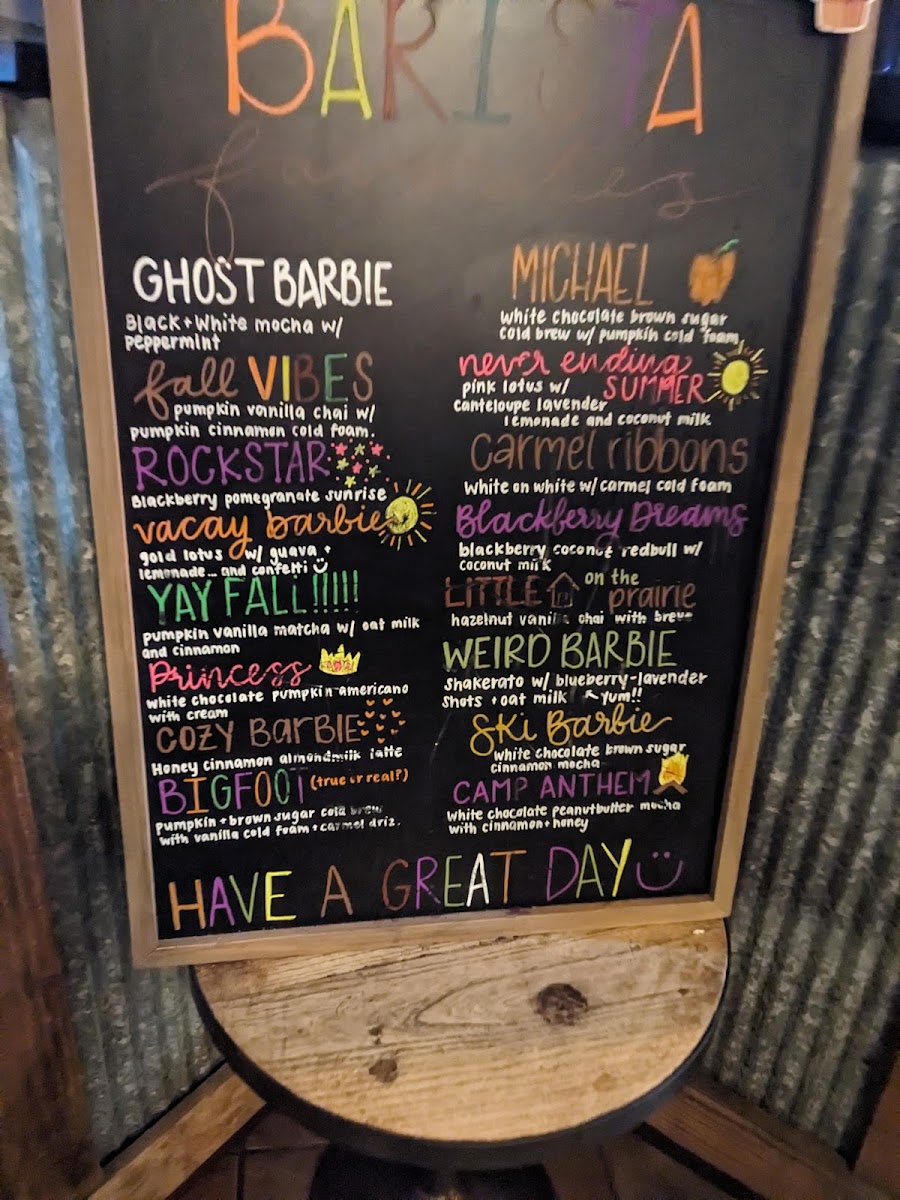 BARISTA
favorites
GHOST BARBIE
Black + White mocha w/
peppermint
fall VIBES
pumpkin vanilla chai w/
pumpkin cinnamon cold foam.
ROCKSTAR
Blackberry pomegranate sunrise
vacay barbie
gold lotus w/ guava +
lemonade... and confetti
YAY FALL!!!!!
pumpkin vanilla matcha w/ oat milk
and cinnamon
Princess
white chocolate pumpkin americano
with cream
COZY BARBIE
Honey cinnamon almondmilk latte
BIGFOOT (true or real?)
pumpkin + brown sugar cold brew
with vanilla cold foam + carmel driz.
MICHAEL
white chocolate brown sugar
cold brew w/ pumpkin cold foam
never ending
SUMMER
pink lotus w/
canteloupe lavender
lemonade and coconut milk
Carmel ribbons
White on white w/ carmel cold foam
Blackberry Dreams
blackberry coconut redbull w/
coconut milk
LITTLE on the prairie
hazelnut vanilla chai with breve
WEIRD BARBIE
shakerato w/ blueberry-lavender
shots + oat milk ↖ Yum!!
Ski Barbie
white chocolate brown sugar
cinnamon mocha
CAMP ANTHEM
white chocolate peanutbutter mocha
with cinnamon + honey
HAVE A GREAT DAY